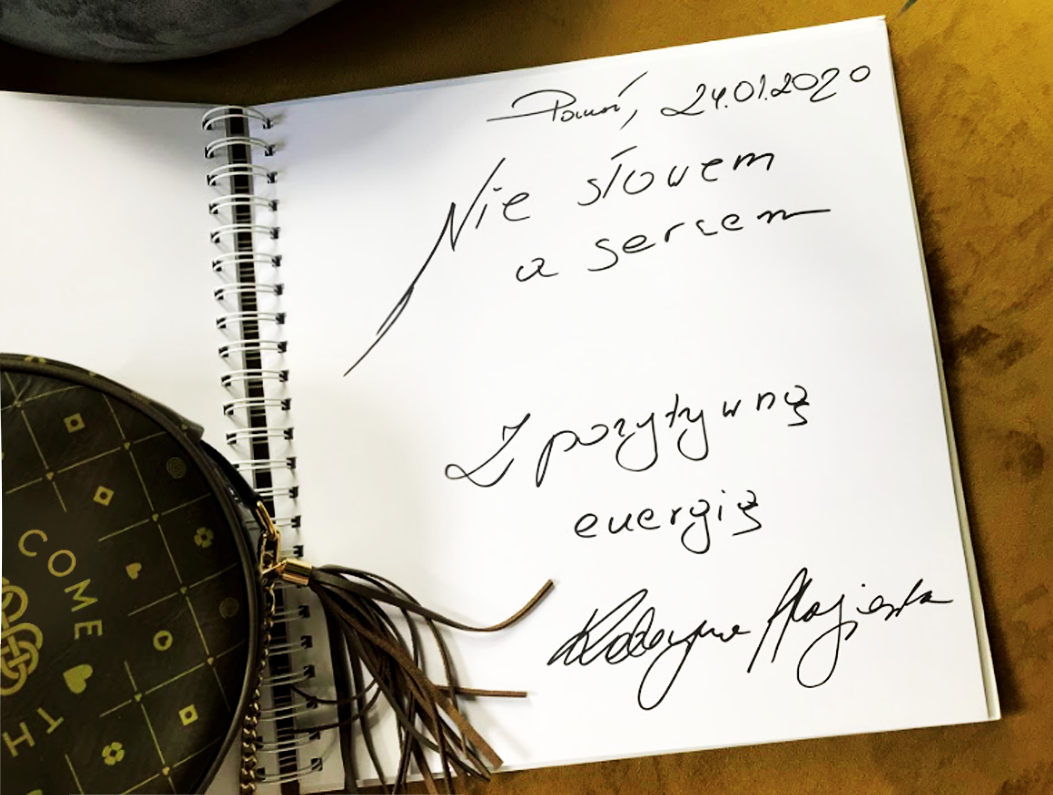 24.01.2020
Nie słowem
a sercem
Z pozytywną
energią
Katarzyna
COME
TH